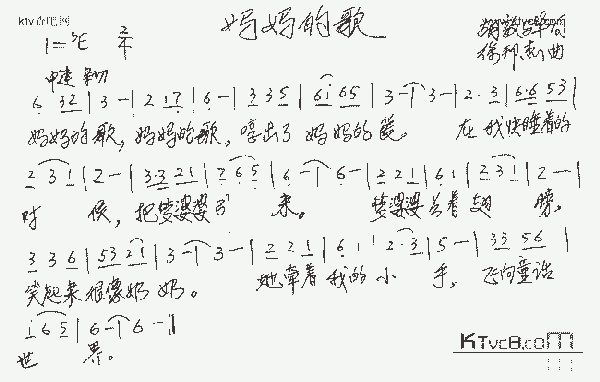 妈妈的歌
1=♭E 2/4
中速 亲切
词
曲
6 32 | 3 - | 2 17 | 6 - | 3 3 5 | 6i 65 | 3 - | 3 - | 2· 3 | 6·6 53 |
妈妈的歌，妈妈的歌，哼出了 妈妈的爱。 在我快睡着的
2 3 1 | 2 - | 3·3 21 | 7 6 5 | 6 - | 6 - | 2 2 1 | 6 1 | 2 3 1 | 2 - |
时 候，把梦婆婆 来。 梦婆婆 着翅 膀，
3 3 6 | 53 21 | 3 - | 3 - | 2 2 1 | 6 1 | 2·3 | 5 - | 33 56 |
笑起来很像奶 奶。 她牵着 我的小 手，飞向童话
i 6 5 | 6 - | 6 - ‖
世 界。
KTvc8.com